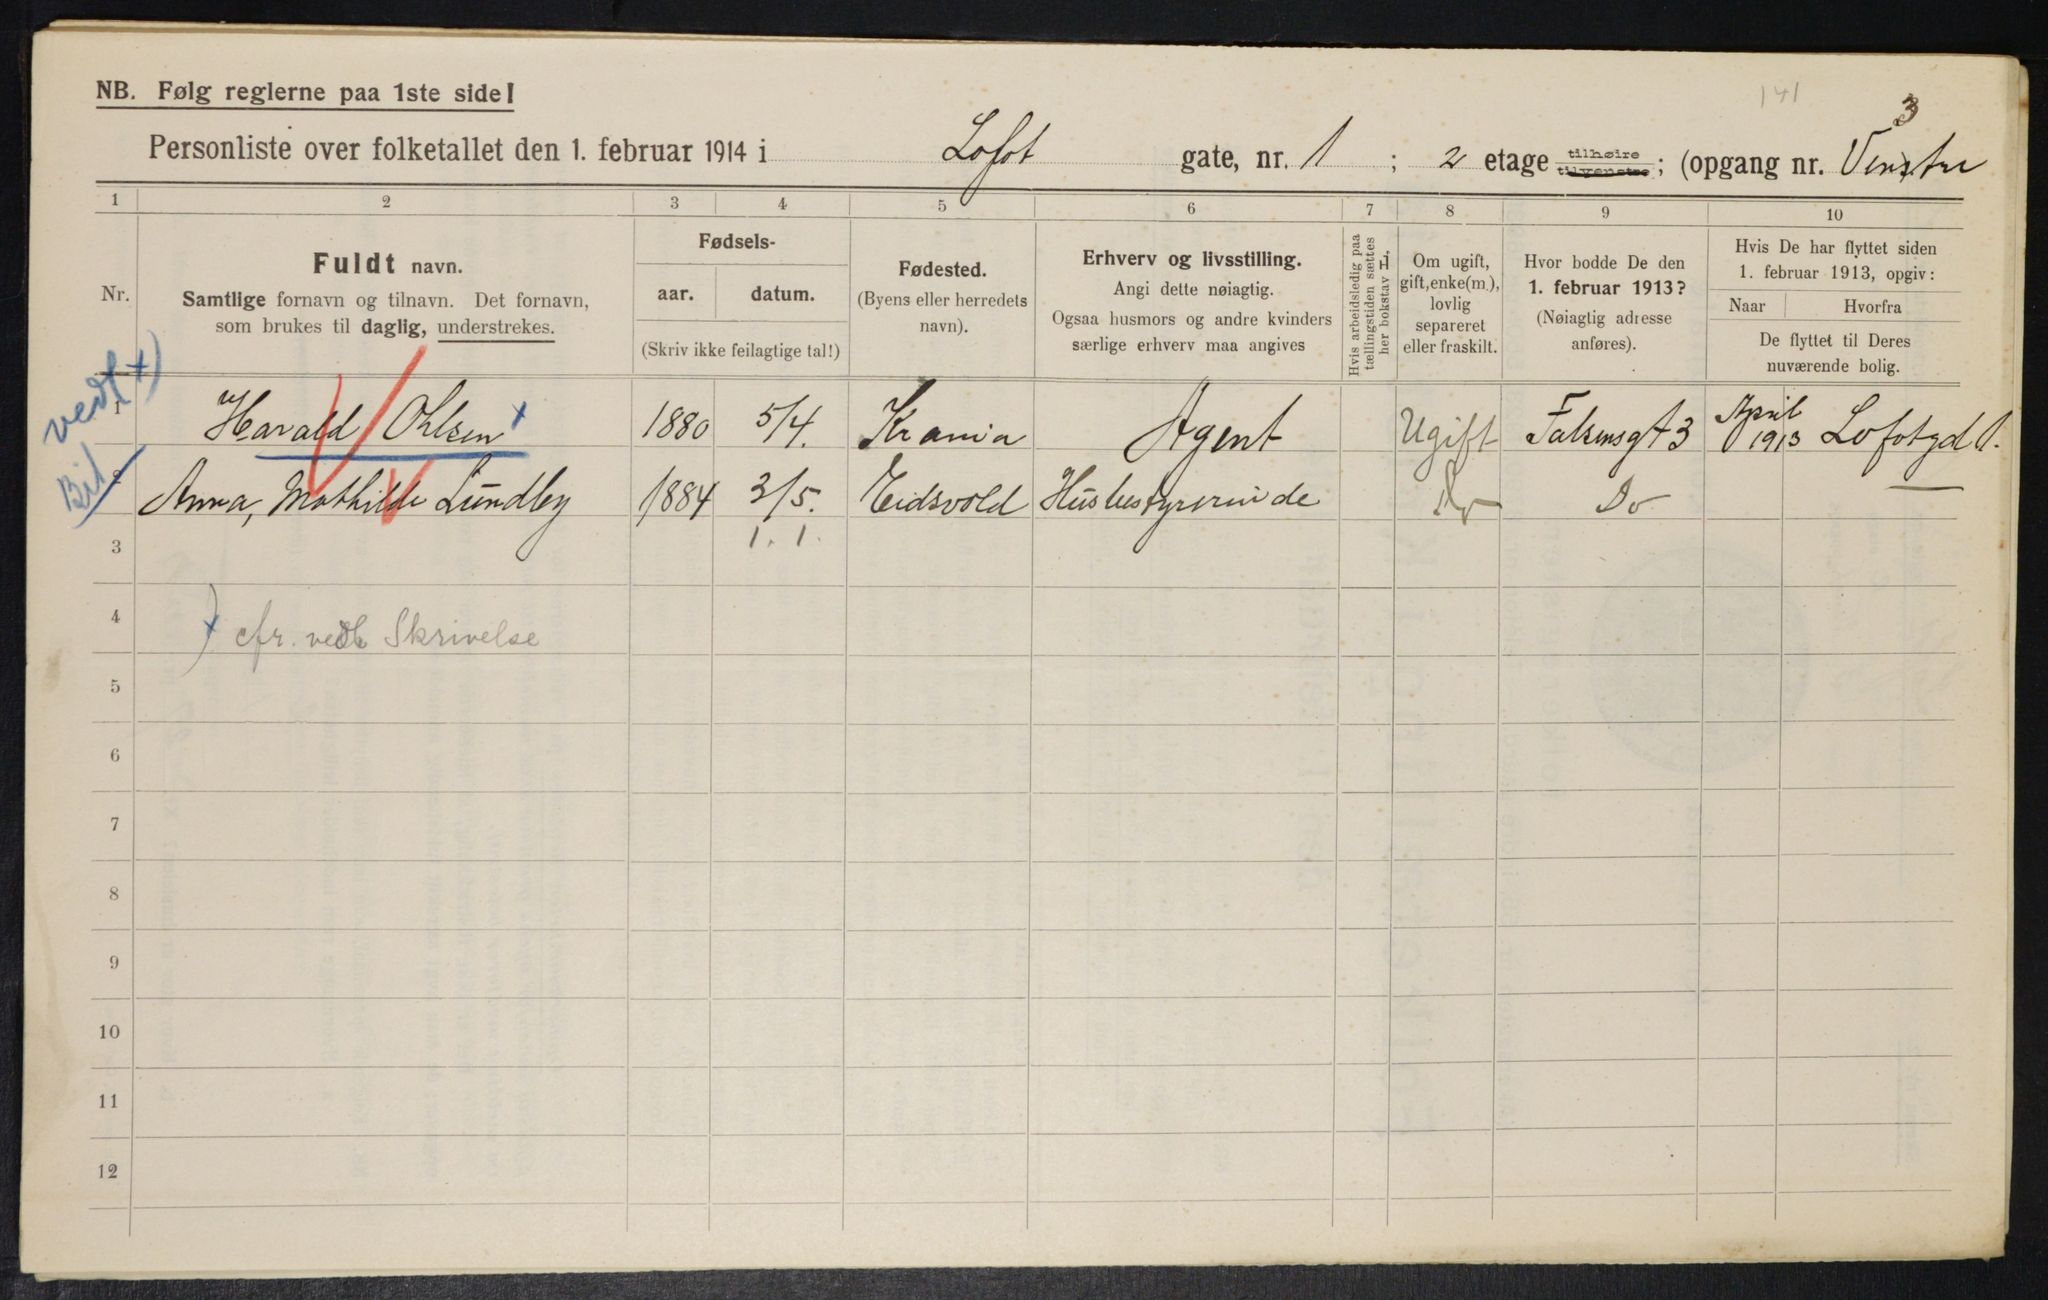 141
NB. Følg reglerne paa 1ste side!
3
Personliste over folketallet den 1. februar 1914 i Lofot gate, nr. 1 ; 2 etage tilhøire tilvenstre ; (opgang nr. Venstre
1 2 3 4 5 6 7 8 9 10
Nr.
Fuldt navn.
Samtlige fornavn og tilnavn. Det fornavn,
som brukes til daglig, understrekes.
Fødsels-
aar. datum.
(Skriv ikke feilagtige tal!)
Fødested.
(Byens eller herredets
navn).
Erhverv og livsstilling.
Angi dette nøiagtig.
Ogsaa husmors og andre kvinders
særlige erhverv maa angives
Hvis arbeidsledig paa
tællingstiden sættes
her bokstav L.
Om ugift,
gift, enke(m.),
lovlig
separeret
eller fraskilt.
Hvor bodde De den
1. februar 1913?
(Nøiagtig adresse
anføres).
Hvis De har flyttet siden
1. februar 1913, opgiv:
Naar Hvorfra
De flyttet til Deres
nuværende bolig.
vedl +)
1 Harald Ohlsen + 1880 5/4. Krania Agent Ugift Falsensgt 3 April 1913 Lofotgd 1.
Bil
2 Anna, Mathilde Lundby 1884 3/5. Eidsvold Husbestyrerinde Do Do
3 1. 1.
4 +) cfr. vedl Skrivelse
5
6
7
8
9
10
11
12